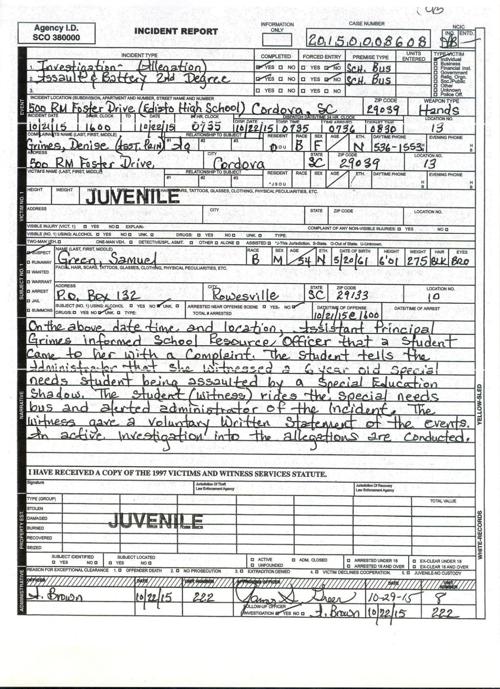 Agency I.D.
SCO 380000
INCIDENT REPORT
INFORMATION ONLY
CASE NUMBER
NCIC
20150008608
INCIDENT TYPE
COMPLETED
FORCED ENTRY
PREMISE TYPE
UNITS ENTERED
TYPE VICTIM
1. Investigation - (Allegation)
YES NO YES NO Sch. Bus
2. Assault & Battery 2nd Degree
YES NO YES NO Sch. Bus
3.
YES NO YES NO
Individual
Business
INCIDENT LOCATION (SUBDIVISION, APARTMENT AND NUMBER, STREET NAME AND NUMBER)
ZIP CODE
WEAPON TYPE
500 RM Foster Drive (Edisto High School) Cordova, SC 29039 Hands
INCIDENT DATE
LOCATION NO.
10/21/15 1600 10/22/15 0735 10/22/15 0735 0736 0830 13
COMPLAINANT'S NAME (LAST, FIRST, MIDDLE)
RELATIONSHIP TO SUBJECT
RESIDENT
RACE
SEX
AGE
ETH.
DAYTIME PHONE
EVENING PHONE
Grimes, Denise (Asst. Prin) B F N 536-1553
ADDRESS
CITY
STATE
ZIP CODE
LOCATION NO.
500 RM Foster Drive, Cordova SC 29039 13
VICTIM'S NAME (LAST, FIRST, MIDDLE)
RELATIONSHIP TO SUBJECT
RESIDENT RACE SEX AGE ETH. DAYTIME PHONE EVENING PHONE
JUVENILE
HEIGHT WEIGHT HAIR
SCARS, TATTOOS, GLASSES, CLOTHING, PHYSICAL PECULIARITIES, ETC.
ADDRESS CITY STATE ZIP CODE LOCATION NO.
VISIBLE INJURY (VICT. 1) YES NO EXPLAIN:
COMPLAINT OF ANY NON-VISIBLE INJURIES YES NO
NAME (LAST, FIRST, MIDDLE) RACE SEX AGE ETH. DATE OF BIRTH HEIGHT WEIGHT HAIR EYES
SUSPECT
Green, Samuel B M 54 N 5/20/61 6'01 275 BLK BRO
RUNAWAY
FACIAL HAIR, SCARS, TATTOOS, GLASSES, CLOTHING, PHYSICAL PECULIARITIES, ETC.
WANTED
WARRANT
ARREST
ADDRESS CITY STATE ZIP CODE LOCATION NO.
P.O. Box 132 Rowesville SC 29133 10
JAIL
SUMMONS
SUBJECT (NO. 1) USING ALCOHOL YES NO UNK.
ARRESTED NEAR OFFENSE SCENE YES NO
DATE/TIME OF OFFENSE
DATE/TIME OF ARREST
DRUGS YES NO UNK. TYPE:
TOTAL # ARRESTED
10/21/15 @ 1600
On the above date time and location, Assistant Principal
Grimes informed School Resource Officer that a student
came to her with a Complaint. The student tells the
administrator that she witnessed a 6 year old special
needs student being assaulted by a Special Education
Shadow. The student (witness) rides the special needs
bus and alerted administrator of the incident. The
witness gave a voluntary written statement of the events.
An active investigation into the allegations are conducted.
NARRATIVE
YELLOW-SLED
I HAVE RECEIVED A COPY OF THE 1997 VICTIMS AND WITNESS SERVICES STATUTE.
Signature
Jurisdiction Of Theft
Law Enforcement Agency
Jurisdiction of Recovery
Law Enforcement Agency
TYPE (GROUP)
TOTAL VALUE
STOLEN
DAMAGED
JUVENILE
BURNED
RECOVERED
SEIZED
PROPERTY EST.
WHITE-RECORDS
SUBJECT IDENTIFIED
YES NO
SUBJECT LOCATED
YES NO
ACTIVE
UNFOUNDED
ADM. CLOSED
ARRESTED UNDER 18
ARRESTED 18 AND OVER
EX-CLEAR UNDER 18
EX-CLEAR 18 AND OVER
REASON FOR EXCEPTIONAL CLEARANCE 1. OFFENDER DEATH 2. NO PROSECUTION 3. EXTRADITION DENIED 4. VICTIM DECLINES COOPERATION 5. JUVENILE-NO CUSTODY
ADMINISTRATIVE
DATE UNIT NUMBER
A. Brown 10/22/15 222 10-29-15 8
FOLLOW-UP INVESTIGATION YES NO
A. Brown 10/22/15 222